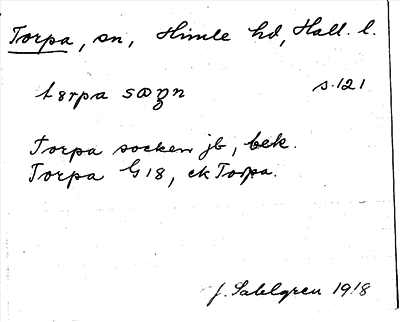 Torpa, sn, Himle hd, Hall. l.
tɜrpa sœʒn s. 121
Torpa socken jb, bek.
Torpa G 18, ek Torpa.
J. Sahlgren 1918